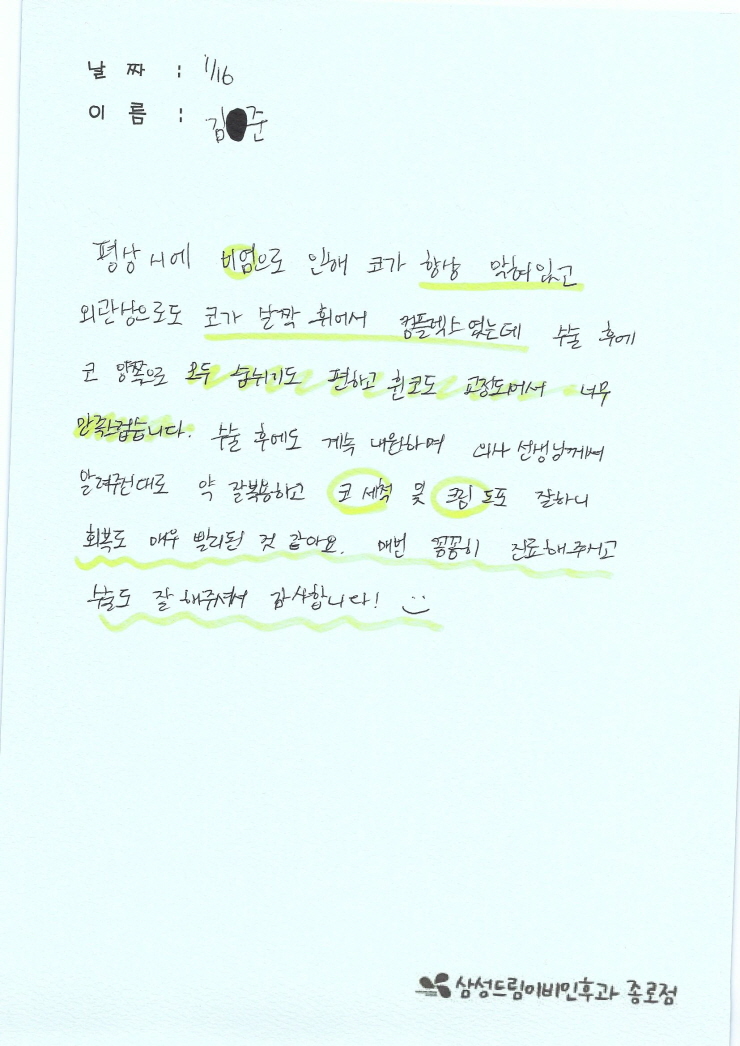 날 짜 : 1/16
이 름 : 김 준
평상시에 비염으로 인해 코가 항상 막혀있고
외관상으로도 코가 살짝 휘어서 컴플렉스였는데 수술 후에
코 양쪽으로 모두 숨쉬기도 편하고 휜코도 교정되어서 너무
만족스럽습니다. 수술 후에도 계속 내원하며 의사 선생님께서
알려주신대로 약 잘복용하고 코 세척 및 크림 도포 잘하니
회복도 매우 빨리된 것 같아요. 매번 꼼꼼히 진료해주시고
수술도 잘 해주셔서 감사합니다! :)
삼성드림이비인후과 종로점